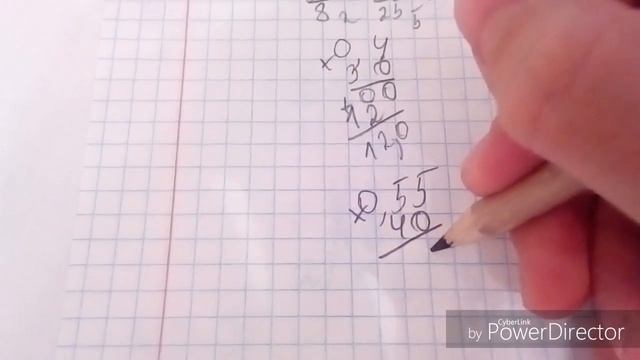 8 2 25 5
×0,4
30
00
+12
12,0
×0,55
40
by CyberLink
PowerDirector